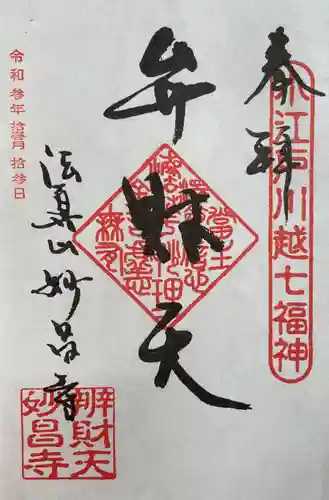 奉拝
小江戸川越七福神
弁財天
法眞山妙昌寺
令和参年拾壹月拾参日
辨財天
妙昌寺